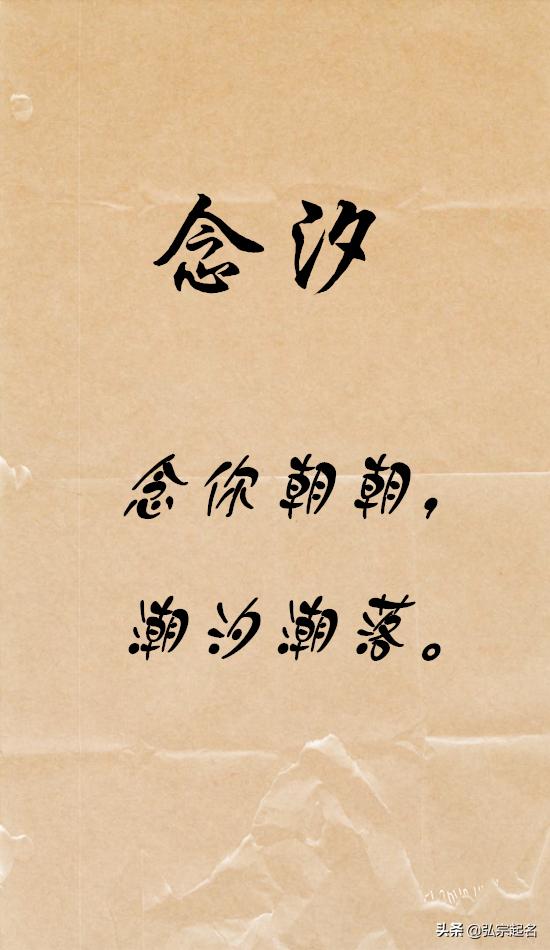 念汐
念你朝朝，
潮汐潮落。
头条 @弘宗起名